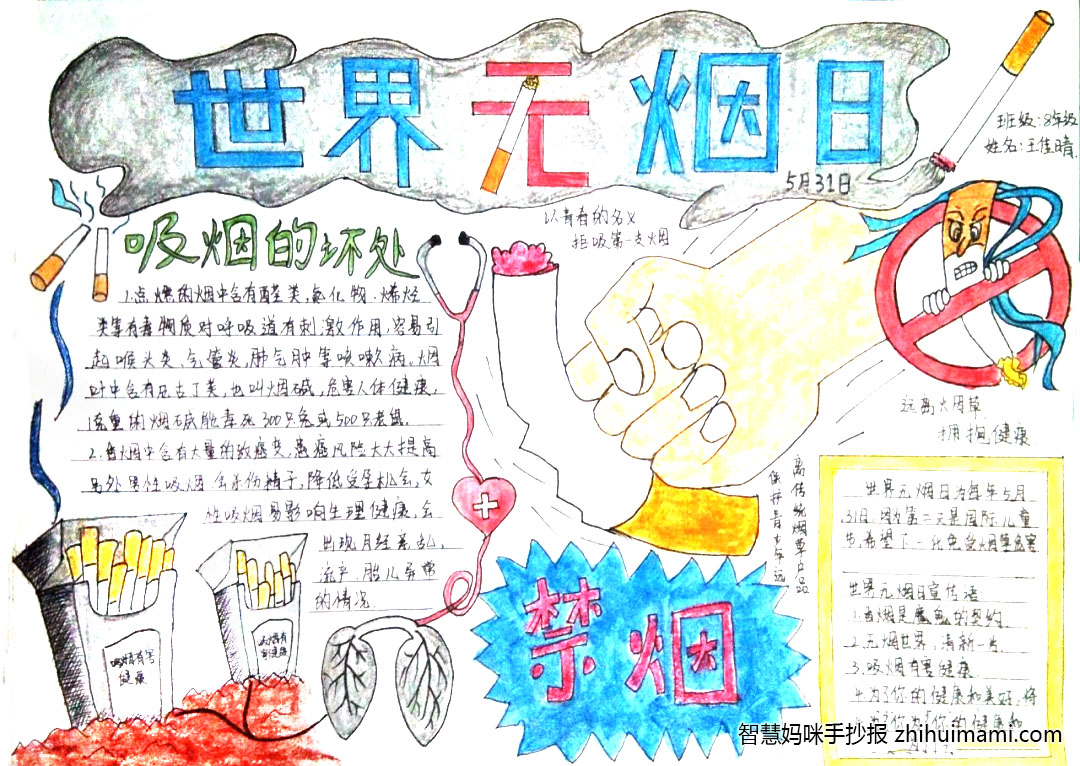 世界无烟日
5月31日
班级:8年级
姓名:王佳晴
吸烟的坏处
以青春的名义
拒吸第一支烟
1.点燃的烟中含有醛类,氮化物、烯烃
类等有毒物质对呼吸道有刺激作用,容易引
起喉头炎、气管炎,肺气肿等咳嗽病。烟
叶中含有尼古丁类,也叫烟碱,危害人体健康,
的烟碱能毒死300只兔或500只老鼠.
2.香烟中含有大量的致癌类,患癌风险大大提高
另外男性吸烟会杀伤精子,降低受孕机会,女
性吸烟易影响生理健康,会
出现月经紊乱,
流产,胎儿异常
的情况.
吸烟有害
健康
吸烟有
害健康
禁烟
保护青少年远
离传统烟草产品
远离火烟草
拥抱健康
世界无烟日为每年5月
31日,因为第二天是国际儿童
节,希望下一代免受烟草危害
世界无烟日宣传语:
1.香烟是魔鬼的契约
2.无烟世界,清新一片
3.吸烟有害健康
4.为了你的健康和美好,将
你的健康和
智慧妈咪手抄报 zhihuimami.com